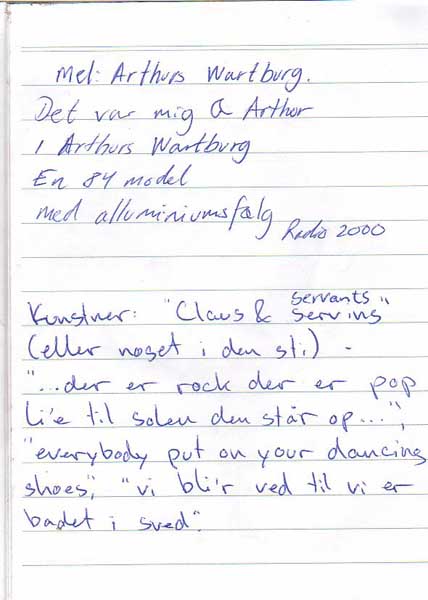 Mel: Arthurs Wartburg.
Det var mig & Arthor
i Arthurs Wartburg
En 84 model
med alluminiumsfælg
Radio 2000
Kunstner: "Claus & Servants"
Serving
(eller noget i den sti) -
"...der er rock der er pop
li'e til solen den står op...",
"everybody put on your dancing
shoes", "vi bli'r ved til vi er
badet i sved".